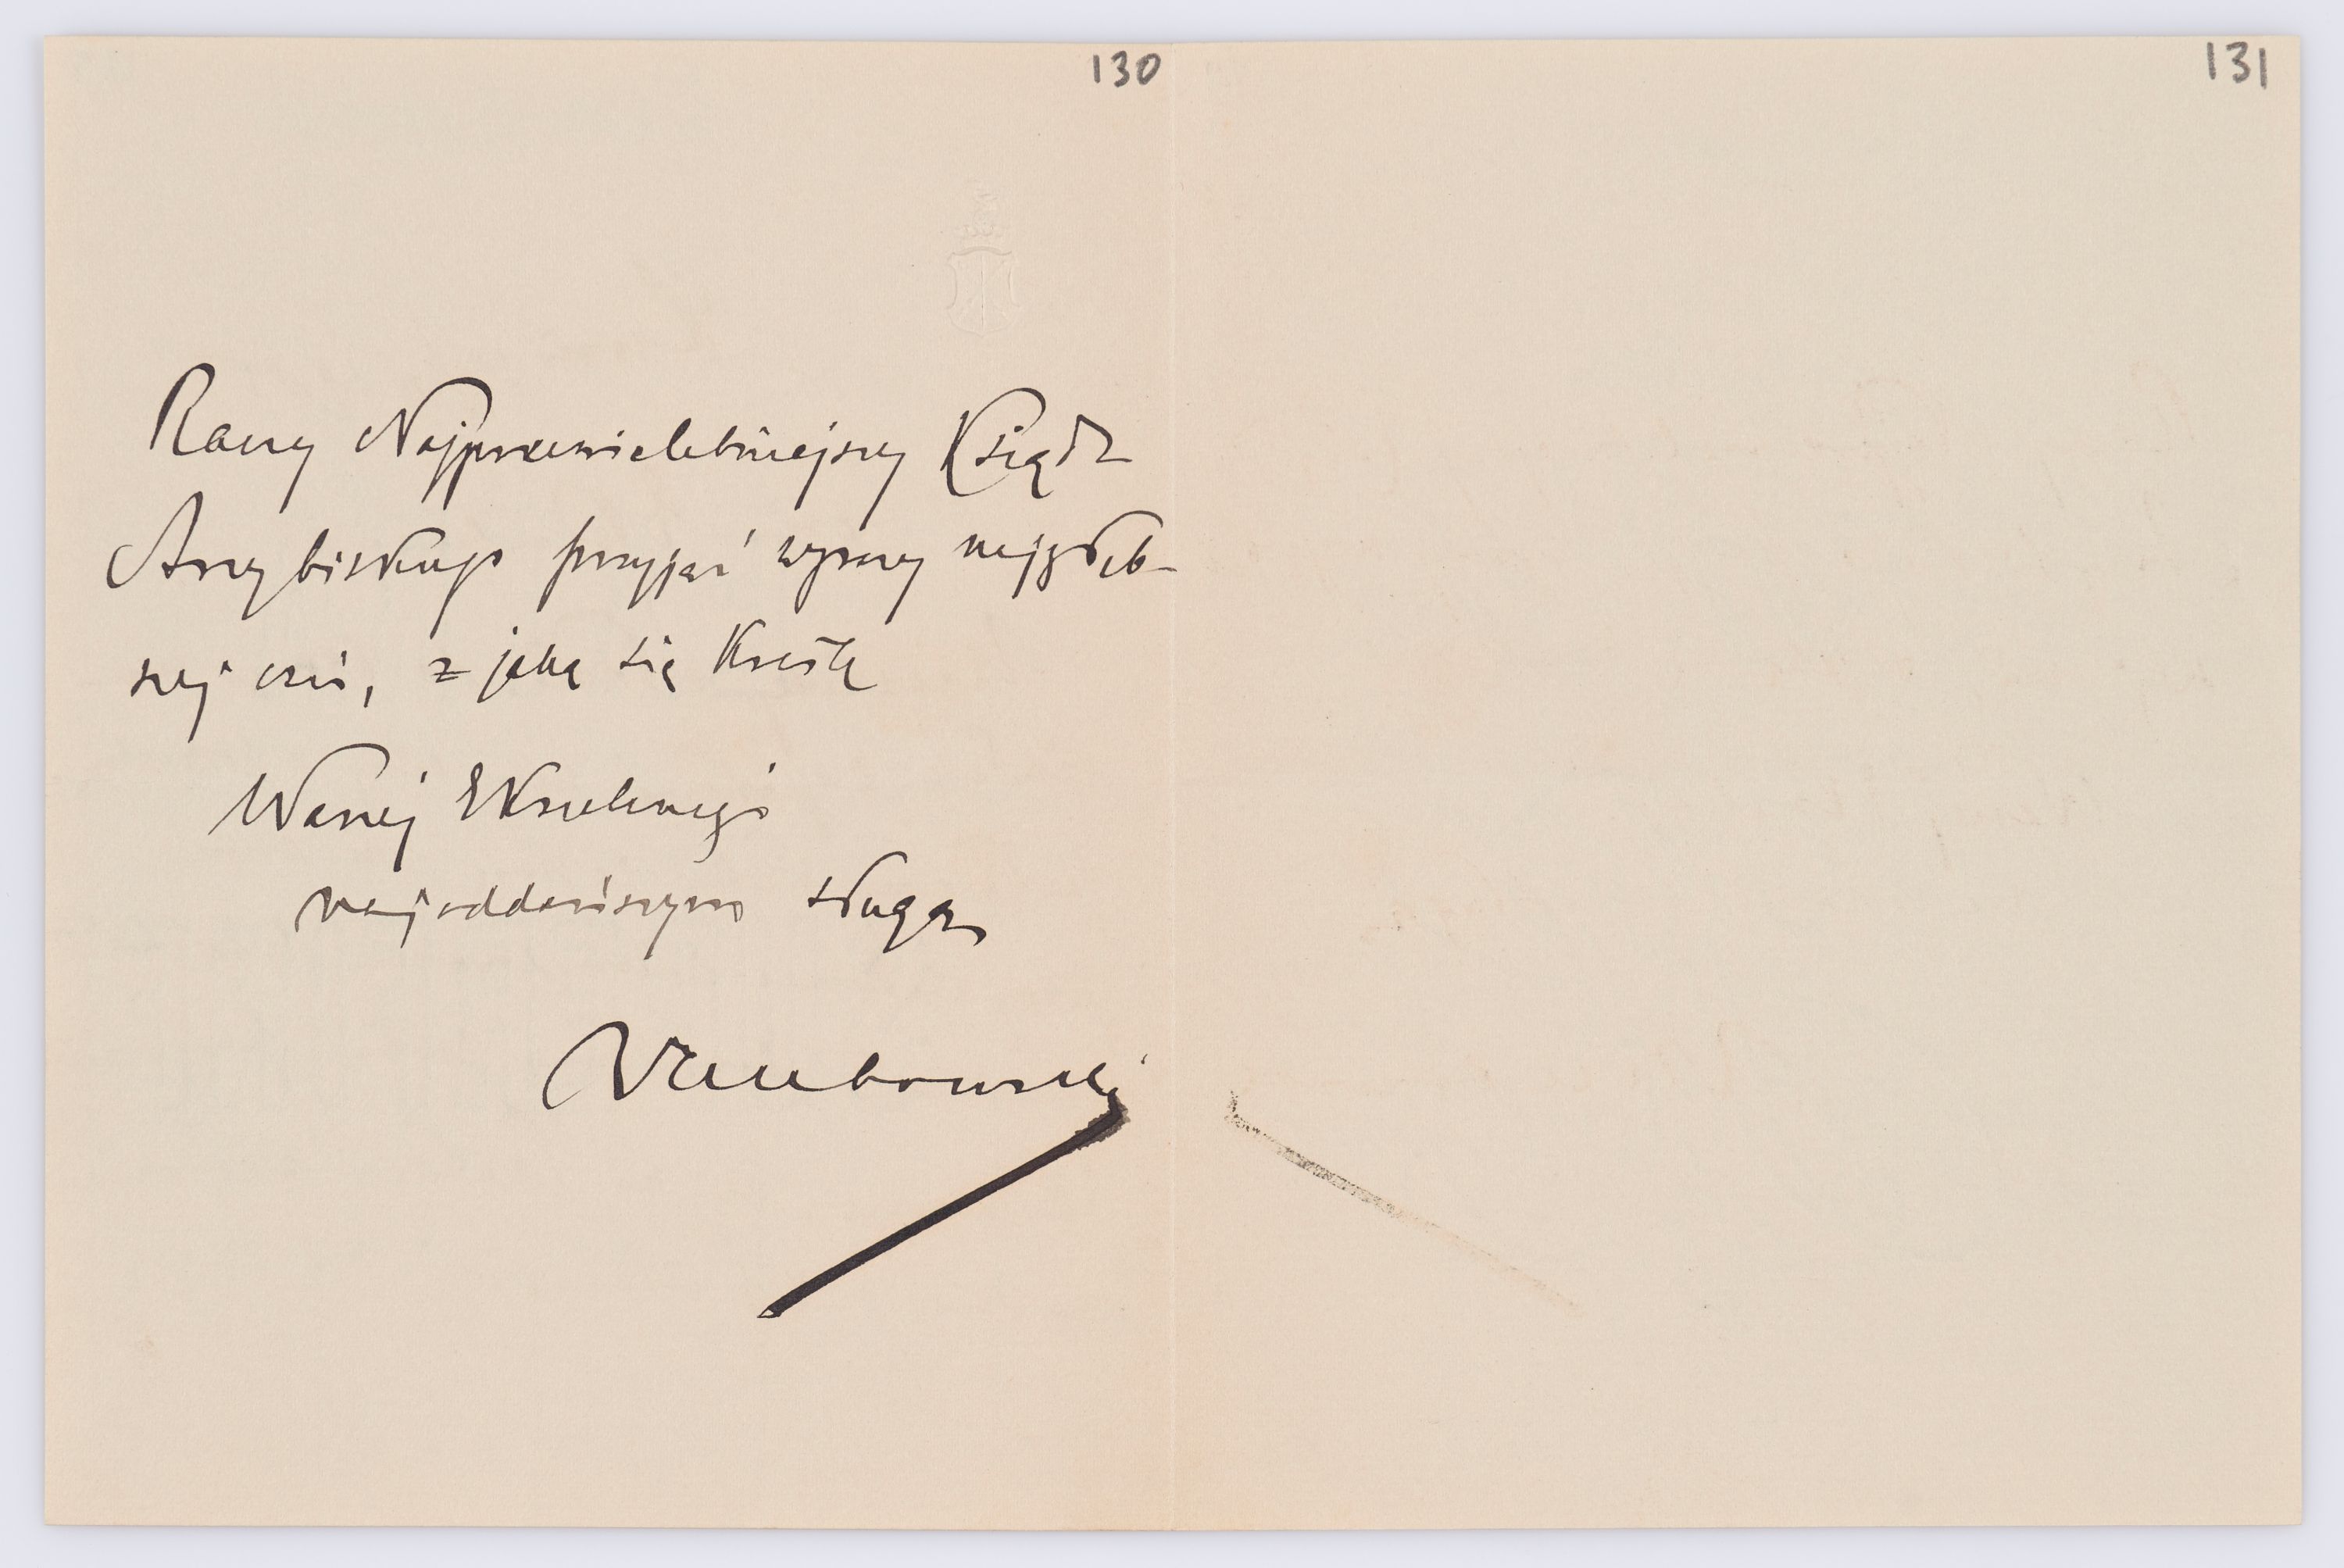 130
131
Raczy Najprzewielebniejszy Ksiądz
Arcybiskup przyjąć wyrazy najgłęb-
szej czci, z jaką się kreślę
Waszej Ekscelencyi
najoddańszym sługą